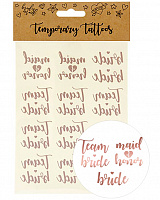 Temporary Tattoos
maid maid
honor honor bride
Team Team
bride bride bride
Team Team
bride bride bride
Team Team
bride bride bride
Team maid
bride honor
bride